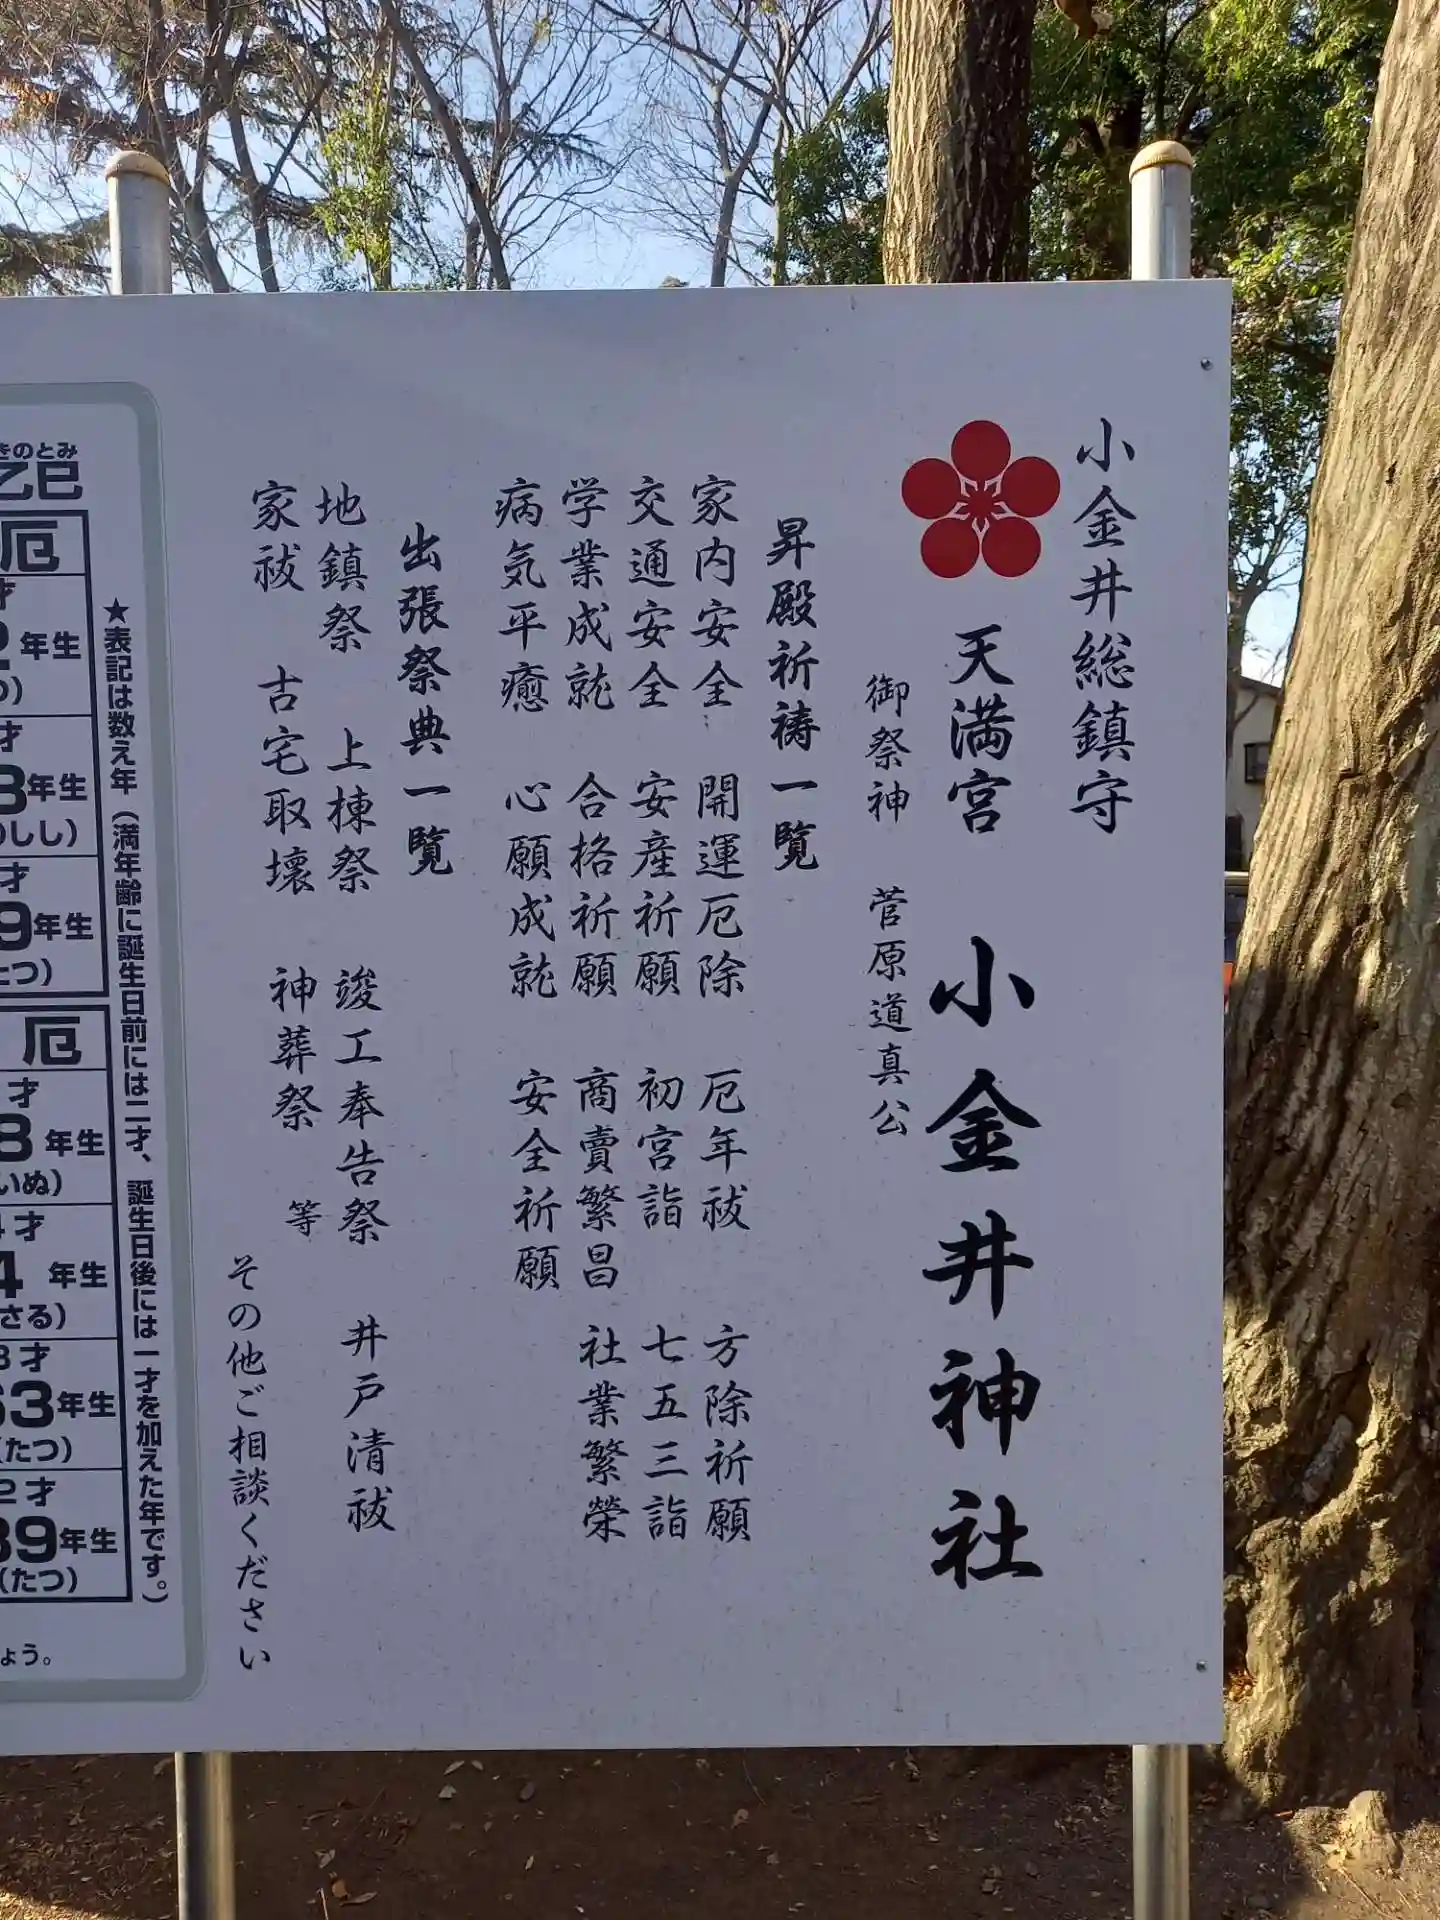 小金井総鎮守
天満宮 小金井神社
御祭神 菅原道真公
昇殿祈祷一覧
家内安全 開運厄除 厄年祓 方除祈願
交通安全 安産祈願 初宮詣 七五三詣
学業成就 合格祈願 商賣繁昌 社業繁榮
病気平癒 心願成就 安全祈願
出張祭典一覧
地鎮祭 上棟祭 竣工奉告祭 井戸清祓
家祓 古宅取壊 神葬祭 等
その他ご相談ください
きのとみ
乙巳
厄
才
年生
才
年生
のしし)
才
9年生
たつ)
厄
才
8年生
いぬ)
4才
4年生
さる)
8才
63年生
(たつ)
2才
39年生
(たつ)
★表記は数え年(満年齢に誕生日前には二才、誕生日後には一才を加えた年です。)
ょう。